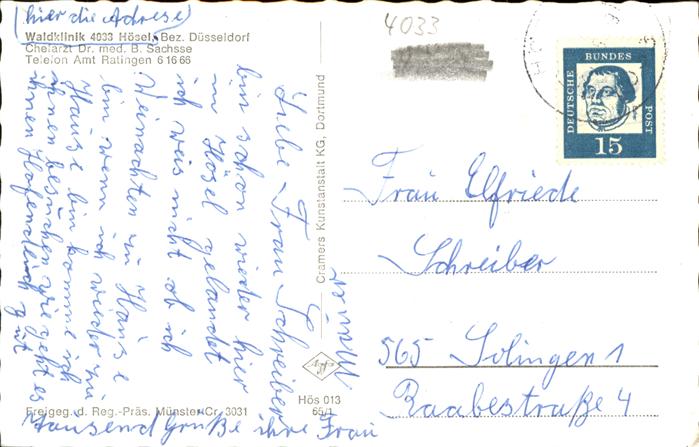 (hier die Adresse)
Waldklinik 4033 Hösel, Bez. Düsseldorf
Chefarzt Dr. med. B. Sachsse
Telefon Amt Ratingen 6 16 66
4033
DEUTSCHE BUNDES POST
15
Liebe Frau Schreiber
bin schon wieder hier
in Hösel gelandet
ich weis nicht ob ich
Weinachten zu Hause
bin wenn ich wieder zu
Hause bin komme ich
ihnen besuchen wie geht es
ihnen hofendlich gut
Tausend Grüße ihre Frau
Cramers Kunstanstalt KG, Dortmund
Agfa
Hös 013
65/1
Freigeg. d. Reg.-Präs. Münster Cr. 3031
Frau Elfriede
Schreiber
565 Solingen 1
Raabestraße 4